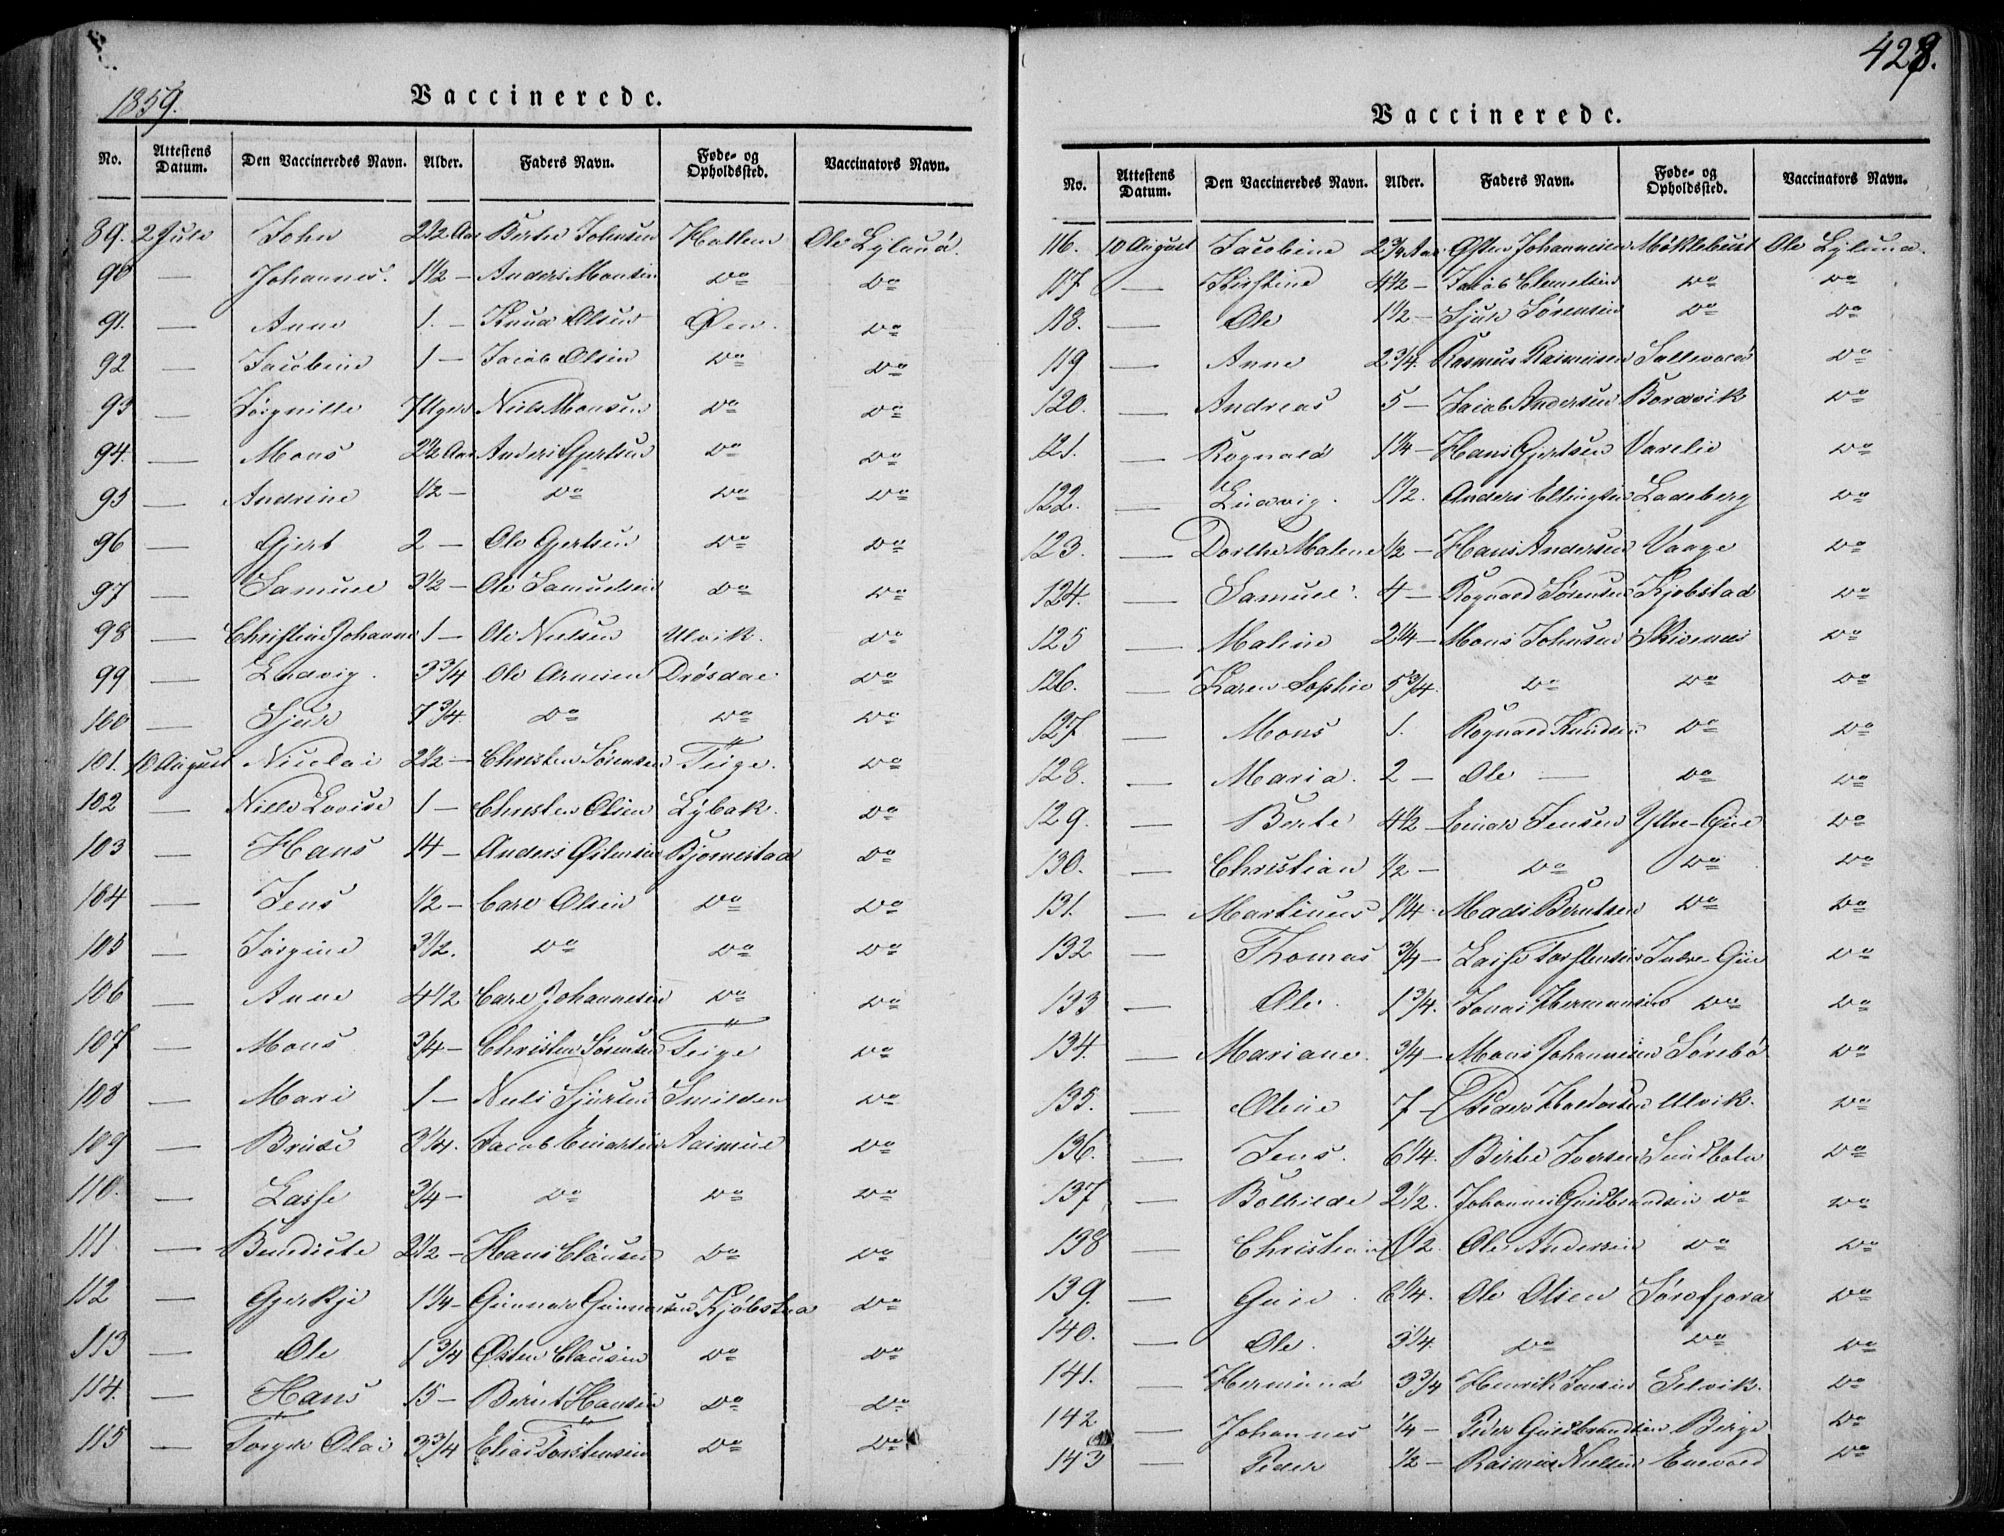 1859.
Vaccinerede.
No. Attestens Datum. Den Vaccineredes Navn. Alder. Faders Navn. Føde- og Opholdssted. Vaccinators Navn.
89. 2 Juli John 2 1/2 Aar Berthel Johnsen Hatlem Ole Lylund.
90 — Johannes. 1 1/2 — Anders Monsen Do Do
91. — Anne 1. — Knud Olsen Øen. Do
92 — Jacobine 1 — Jacob Olsen Do Do
93 — Jørgnille 7 Uger Niels Monsen Do Do
94. — Mons 2 1/2 Aar Anders Gjertsen Do Do
95 — Andrine 1/2 — Do Do Do
96 — Gjert 2 — Ole Gjertsen Do Do
97 — Samuel 3 1/2 — Ole Samuelsen Do Do
98 — Christine Johanne 1 — Ole Nielsen Ulvik. Do
99 — Ludvig. 3 3/4 Ole Arnesen Drøsdal Do
100 — Sjur 7 3/4 Do Do Do
101. 10 August Nicolai 2 1/2 — Christen Sørensen Teige. Do
102 — Nille Lovise 1 — Christen Olsen Lybak. Do
103 — Hans 14 — Anders Østensen Bjørnestad Do
104 — Jens 1/2 — Carl Olsen Do Do
105 — Jørgine 3 1/2. Do Do Do
106 — Anne 4 1/2 Carl Johannesen Do Do
107 — Mons 3/4 — Christen Sørensen Teige Do
108 — Mari 1 — Niels Sjursen Smilden Do
109 — Brite 3 1/4. Jacob Einartsen Aasmul Do
110. — Lasse 3/4 — Do Do Do
111. — Benedicte 2 1/2 — Hans Clausen Do Do
112 — Gjerkje 1 1/4 — Gunnar Gunnarsen Kjøbstad Do
113 — Ole 1 3/4 Østen Clausen Do Do
114. — Hans 15 — Bernt Hansen Do Do
115 — Olai 3 3/4 Elias Torstensen Do Do
428.
Vaccinerede.
No. Attestens Datum. Den Vaccineredes Navn. Alder. Faders Navn. Føde- og Opholdssted. Vaccinators Navn.
116. 10 August Jacobine 2 3/4 Aar Østen Johannesen Møklebust Ole Lylund.
117 — Kirstine 4 1/2 — Jacob Clemetsen Do Do
118. — Ole 1 1/2 — Sjur Sørensen Do Do
119 — Anne 2 3/4. Rasmus Rasmusen Do
120. — Andreas 5 — Jacob Andersen Bordvik Do
121. — Rognald 1 1/4 — Hans Gjertsen Varelid Do
122. — Ludvig. 1 1/2. Anders Ellingsen Ladeberg Do
123. — Dorthe Malene 1/2 — Hans Andersen Vaage Do
124. — Samuel. 4 — Rognald Sørensen Kjøbstad Do
125 — Malene 2 1/4 — Mons Johnsen Skivenes Do
126. — Karen Sophie 5 3/4. Do Do Do
127. — Mons 1. Rognald Knudsen Do Do
128. — Maria. 2 — Ole — Do Do
129. — Berte 4 1/2 — Einar Jensen Ytre-Gue Do
130. — Christian 1/2 — Do Do Do
131. — Martinus 1 1/4. Mads Berntsen Do Do
132 — Thomas 3/4 — Lasse Torstensen Indre-Gue Do
133 — Ole. 1 3/4. Jonas Hermansen Do Do
134. — Mariane. 3/4 — Mons Johannesen Sørebø Do
135. — Oline 7 — Peder Haldorsen Ulvik. Do
136. — Jens. 6 1/4. Berthel Iversen Do
137 — Bolhilde 2 1/2. Johannes Guldbrandsen Do Do
138 — Christian 1/2. Ole Andersen Do Do
139. — Guri. 6 1/4. Ole Olsen Sørefjord Do
140. — Ole. 3 1/4. Do Do Do
141. — Hermund 3 3/4 Henrik Jensen Selvik. Do
142 — Johannes 1/4 — Peder Guldbrandsen Berge Do
143 — Peder 1/2 — Rasmus Nielsen Do